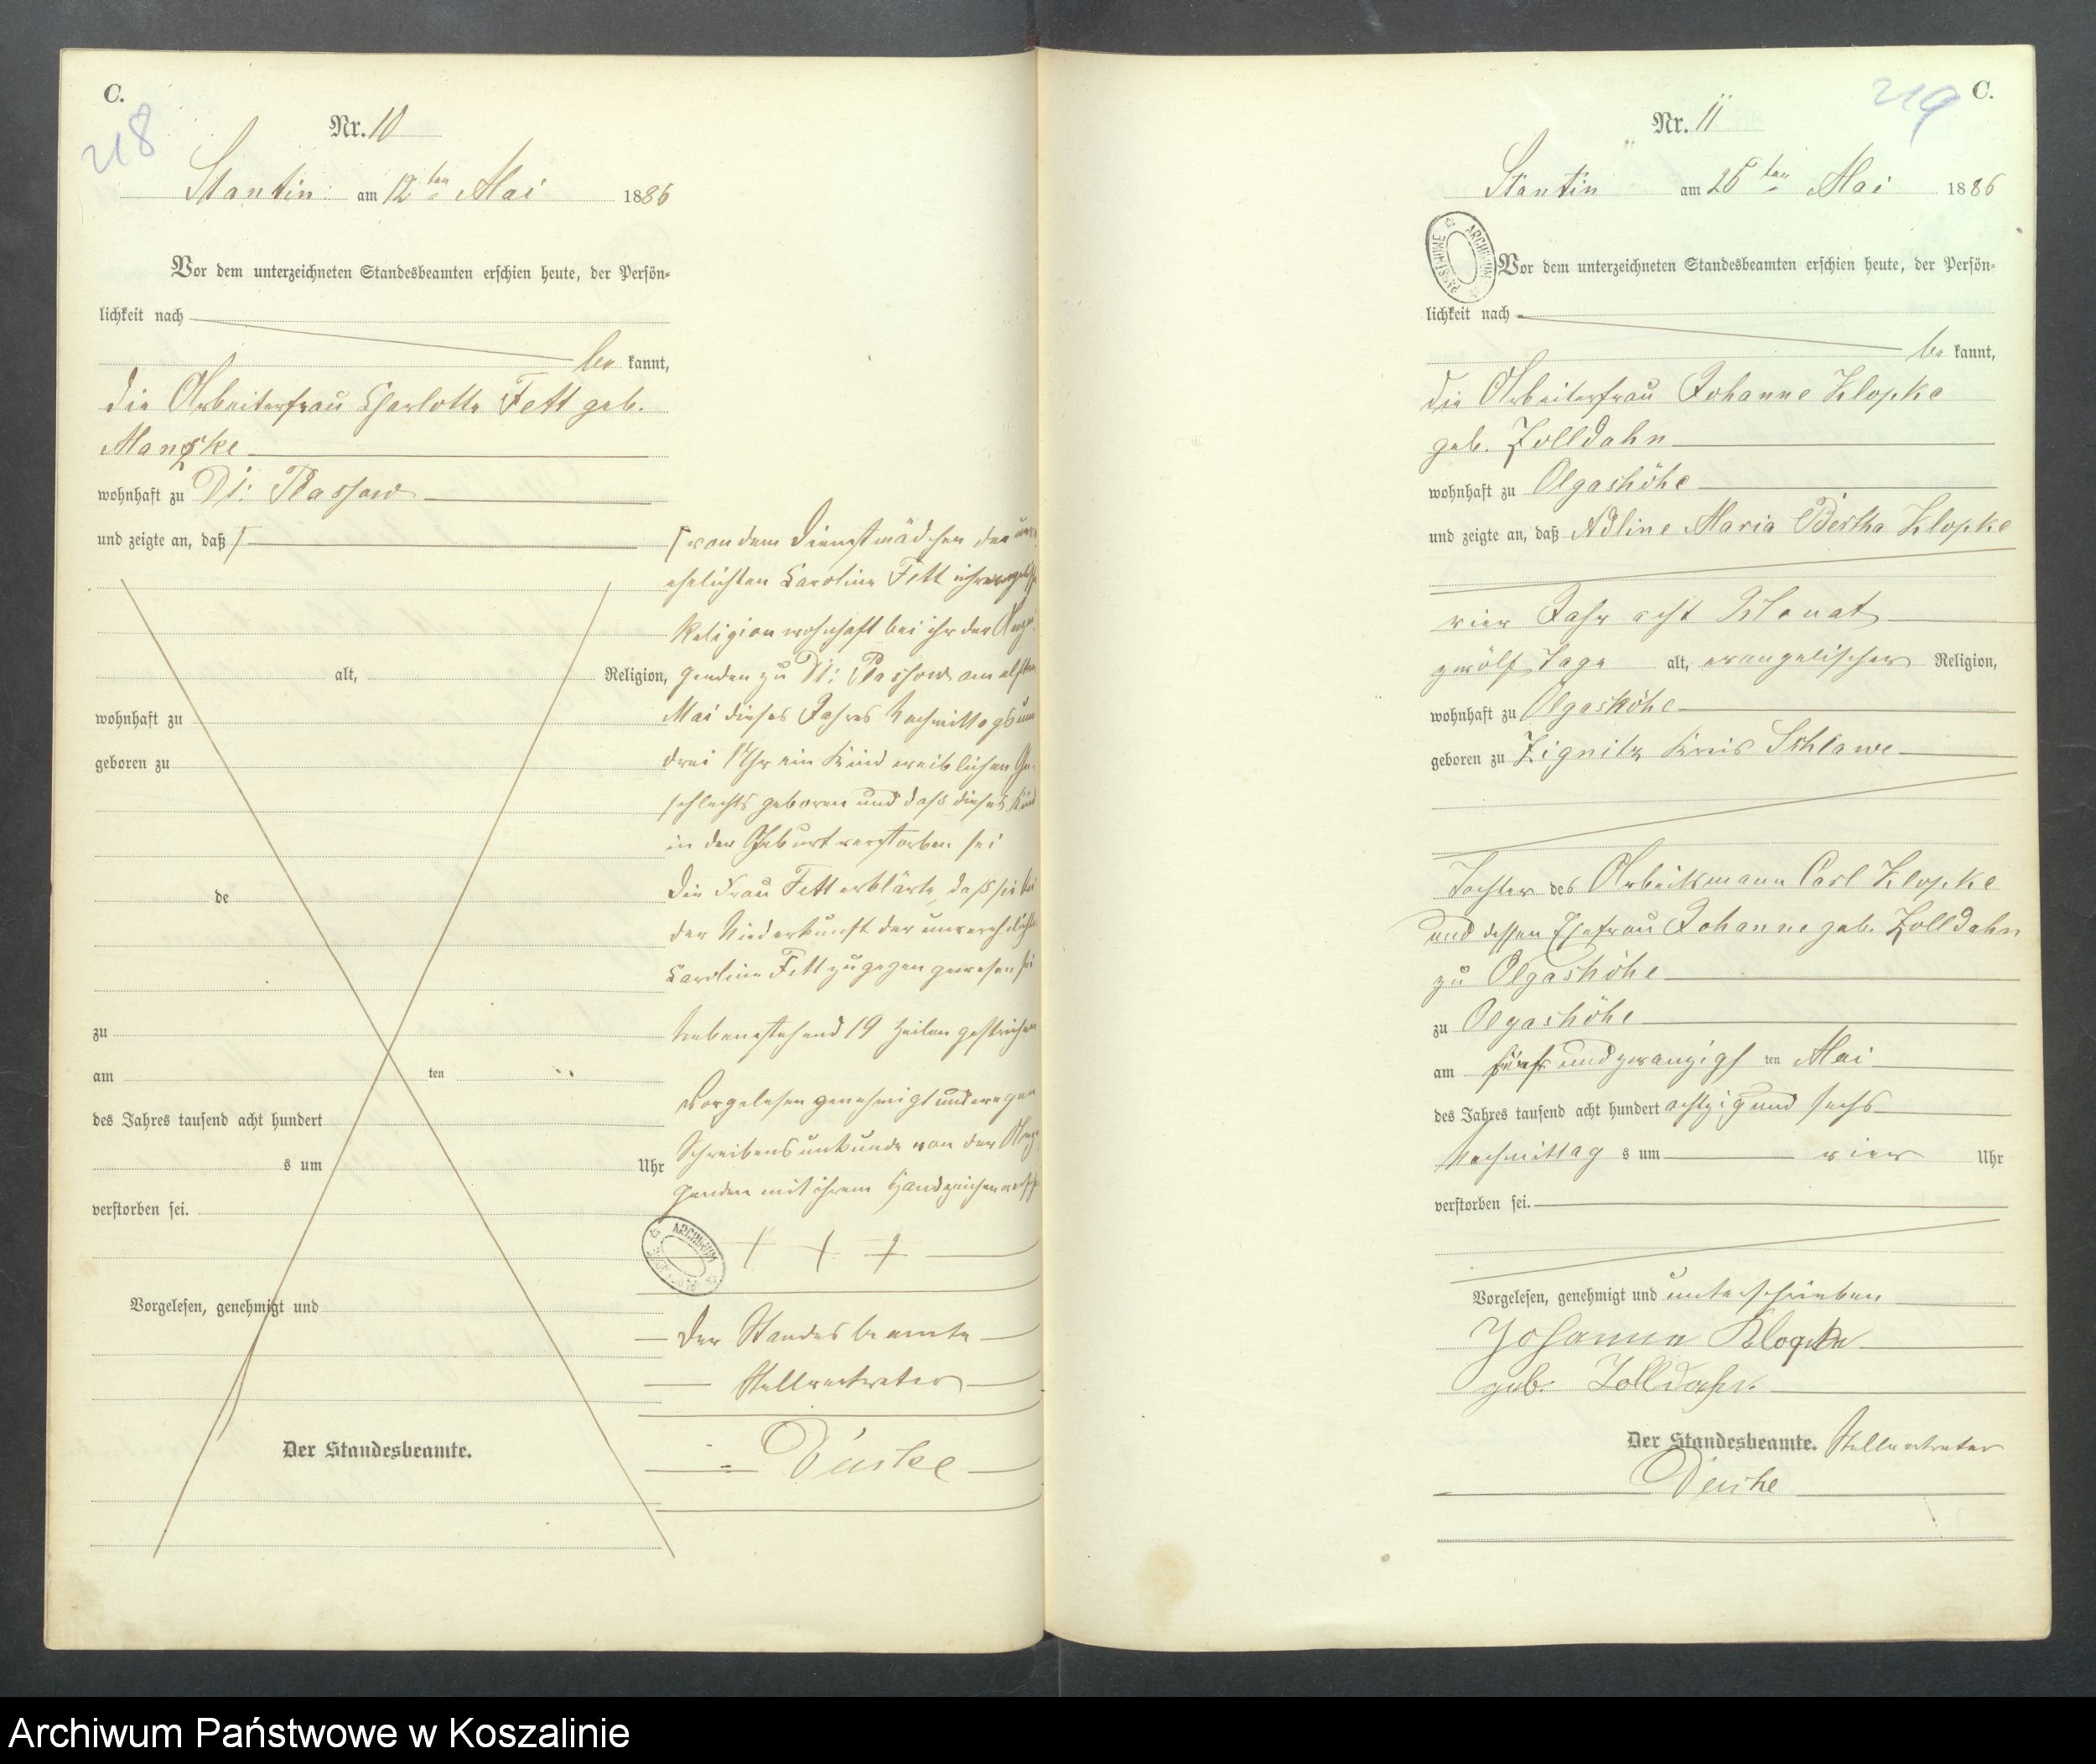 C.
218
Nr. 10
Stantin am 12ten Mai 1886
Vor dem unterzeichneten Standesbeamten erschien heute, der Persön-
lichkeit nach
be kannt,
die Arbeiterfrau Charlotte Fett geb.
Manzke
wohnhaft zu Dt: Plassow
und zeigte an, daß
alt, Religion,
wohnhaft zu
geboren zu
de
zu
am ten
des Jahres tausend acht hundert
s um Uhr
verstorben sei.
Vorgelesen, genehmigt und
Der Standesbeamte.
von dem Dienstmädchen der unver
ehelichten Caroline Fett
Religion wohnhaft bei ihr der Anzei
genden zu Dt: Plassow am elften
Mai dieses Jahres Nachmittags um
drei Uhr ein Kind weiblichen Ge-
schlechts geboren und daß dieses Kind
in der Geburt verstorben sei
Die Frau Fett erklärte, daß sie bei
der Niederkunft der unverehelichten
Caroline Fett zugegen gewesen sei
Nebenstehend 19 Zeilen gestrichen
Vorgelesen genehmigt und wegen
Schreibensunkunde von der Anzei
genden mit ihrem Handzeichen
+ + +
ARCHIWUM
Der Standesbeamte
Stellvertreter
C.
219
Nr. 11
Stantin am 25ten Mai 1886
ARCHIWUM PAŃSTWOWE
Vor dem unterzeichneten Standesbeamten erschien heute, der Persön-
lichkeit nach
be kannt,
die Arbeiterfrau Johanne Klopke
geb. Zolldahn
wohnhaft zu Olgashöhe
und zeigte an, daß Adline Maria Bertha Klopke
vier Jahr acht Monat
zwölf Tage alt, evangelischer Religion,
wohnhaft zu Olgashöhe
geboren zu Zignitz Kreis Schlawe
Tochter des Arbeitsmann Carl Klopke
und dessen Ehefrau Johanne geb. Zolldahn
zu Olgashöhe
zu Olgashöhe
am fünf und zwanzigs ten Mai
des Jahres tausend acht hundert achtzig und sechs
Nachmittag s um vier Uhr
verstorben sei.
Vorgelesen, genehmigt und unterschrieben
Johanne Klopke
geb. Zolldahn
Der Standesbeamte. Stellvertreter
Archiwum Państwowe w Koszalinie